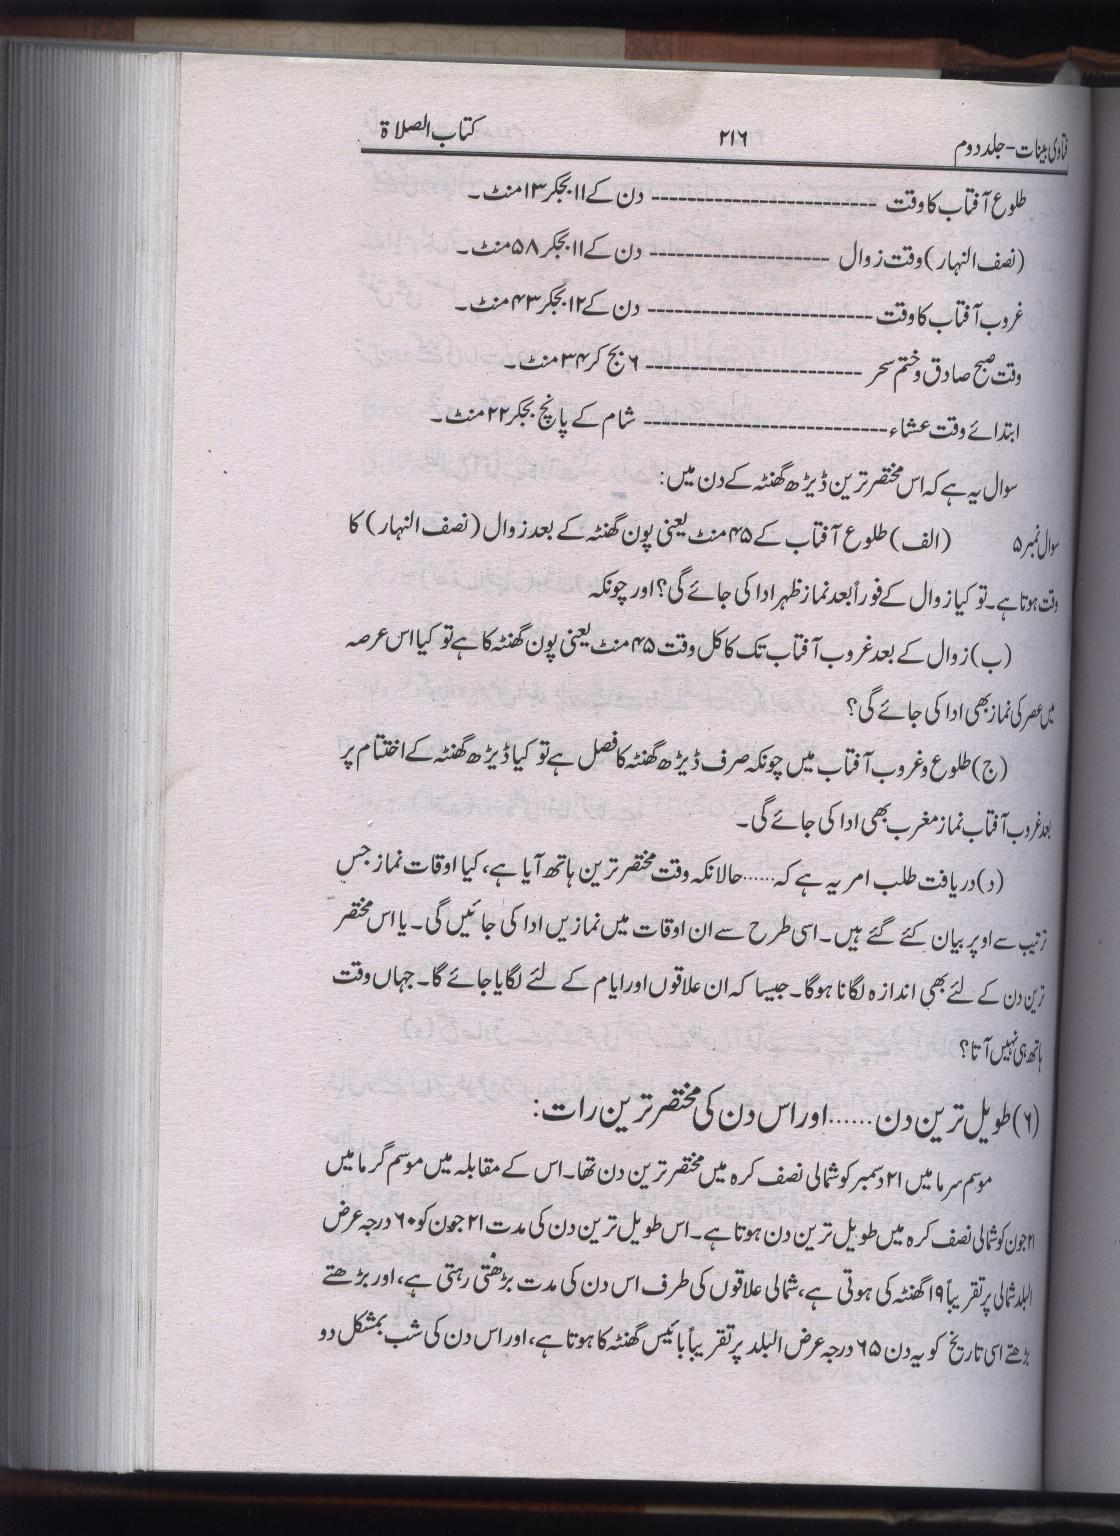 فتاوی بینات - جلد دوم ۲۱۶ کتاب الصلاة
طلوع آفتاب کا وقت ------------------------- دن کے ۱۱ بجکر ۱۳ منٹ۔
(نصف النہار) وقت زوال -------------------- دن کے ۱۱ بجکر ۵۸ منٹ۔
غروب آفتاب کا وقت ------------------------- دن کے ۱۲ بجکر ۴۳ منٹ۔
وقت صبح صادق و ختم سحر ------------------------ ۶ بج کر ۳۴ منٹ۔
ابتدائے وقت عشاء --------------------------- شام کے پانچ بجکر ۲۲ منٹ۔
سوال یہ ہے کہ اس مختصر ترین ڈیڑھ گھنٹہ کے دن میں:
سوال نمبر ۵ (الف) طلوع آفتاب کے ۴۵ منٹ یعنی پون گھنٹہ کے بعد زوال (نصف النہار) کا
وقت ہوتا ہے۔ تو کیا زوال کے فوراً بعد نماز ظہر ادا کی جائے گی؟ اور چونکہ
(ب) زوال کے بعد غروب آفتاب تک کا کل وقت ۴۵ منٹ یعنی پون گھنٹہ کا ہے تو کیا اس عرصہ
میں عصر کی نماز بھی ادا کی جائے گی؟
(ج) طلوع و غروب آفتاب میں چونکہ صرف ڈیڑھ گھنٹہ کا فصل ہے تو کیا ڈیڑھ گھنٹہ کے اختتام پر
بعد غروب آفتاب نماز مغرب بھی ادا کی جائے گی۔
(د) دریافت طلب امر یہ ہے کہ ...... حالانکہ وقت مختصر ترین ہاتھ آیا ہے، کیا اوقات نماز جس
ترتیب سے اوپر بیان کئے گئے ہیں۔ اسی طرح سے ان اوقات میں نمازیں ادا کی جائیں گی۔ یا اس مختصر
ترین دن کے لئے بھی اندازہ لگانا ہوگا۔ جیسا کہ ان علاقوں اور ایام کے لئے لگایا جائے گا۔ جہاں وقت
ہاتھ ہی نہیں آتا؟
(۶) طویل ترین دن ...... اور اس دن کی مختصر ترین رات:
موسم سرما میں ۲۱ دسمبر کو شمالی نصف کرہ میں مختصر ترین دن تھا۔ اس کے مقابلہ میں موسم گرما میں
۲۱ جون کو شمالی نصف کرہ میں طویل ترین دن ہوتا ہے۔ اس طویل ترین دن کی مدت ۲۱ جون کو ۶۰ درجہ عرض
البلد شمالی پر تقریباً ۱۹ گھنٹہ کی ہوتی ہے، شمالی علاقوں کی طرف اس دن کی مدت بڑھتی رہتی ہے، اور بڑھتے
بڑھتے اسی تاریخ کو یہ دن ۶۵ درجہ عرض البلد پر تقریباً بائیس گھنٹہ کا ہوتا ہے، اور اس دن کی شب بمشکل دو